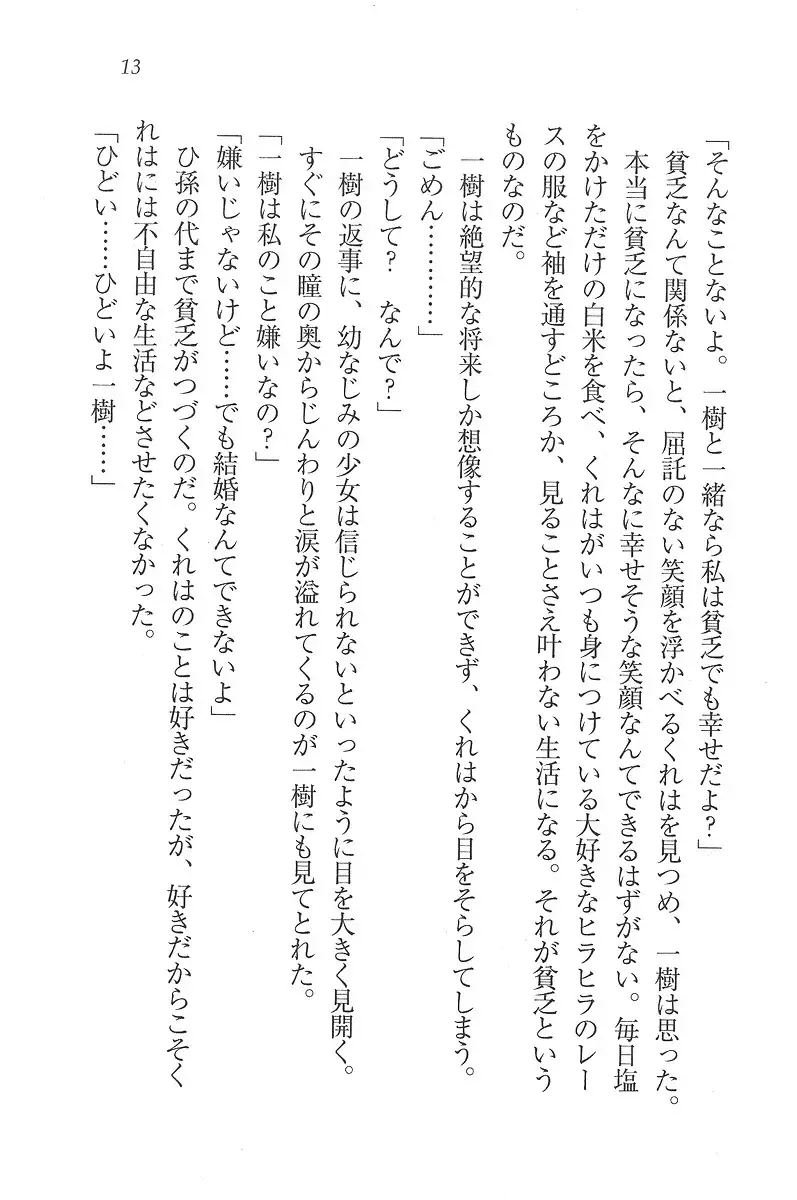 13
「そんなことないよ。一樹と一緒なら私は貧乏でも幸せだよ?」
貧乏なんて関係ないと、屈託のない笑顔を浮かべるくれはを見つめ、一樹は思った。
本当に貧乏になったら、そんなに幸せそうな笑顔なんてできるはずがない。毎日塩
をかけただけの白米を食べ、くれはがいつも身につけている大好きなヒラヒラのレー
スの服など袖を通すどころか、見ることさえ叶わない生活になる。それが貧乏という
ものなのだ。
一樹は絶望的な将来しか想像することができず、くれはから目をそらしてしまう。
「ごめん…………」
「どうして? なんで?」
一樹の返事に、幼なじみの少女は信じられないといったように目を大きく見開く。
すぐにその瞳の奥からじんわりと涙が溢れてくるのが一樹にも見てとれた。
「一樹は私のこと嫌いなの?」
「嫌いじゃないけど……でも結婚なんてできないよ」
ひ孫の代まで貧乏がつづくのだ。くれはのことは好きだったが、好きだからこそく
れはには不自由な生活などさせたくなかった。
「ひどい……ひどいよ一樹……」